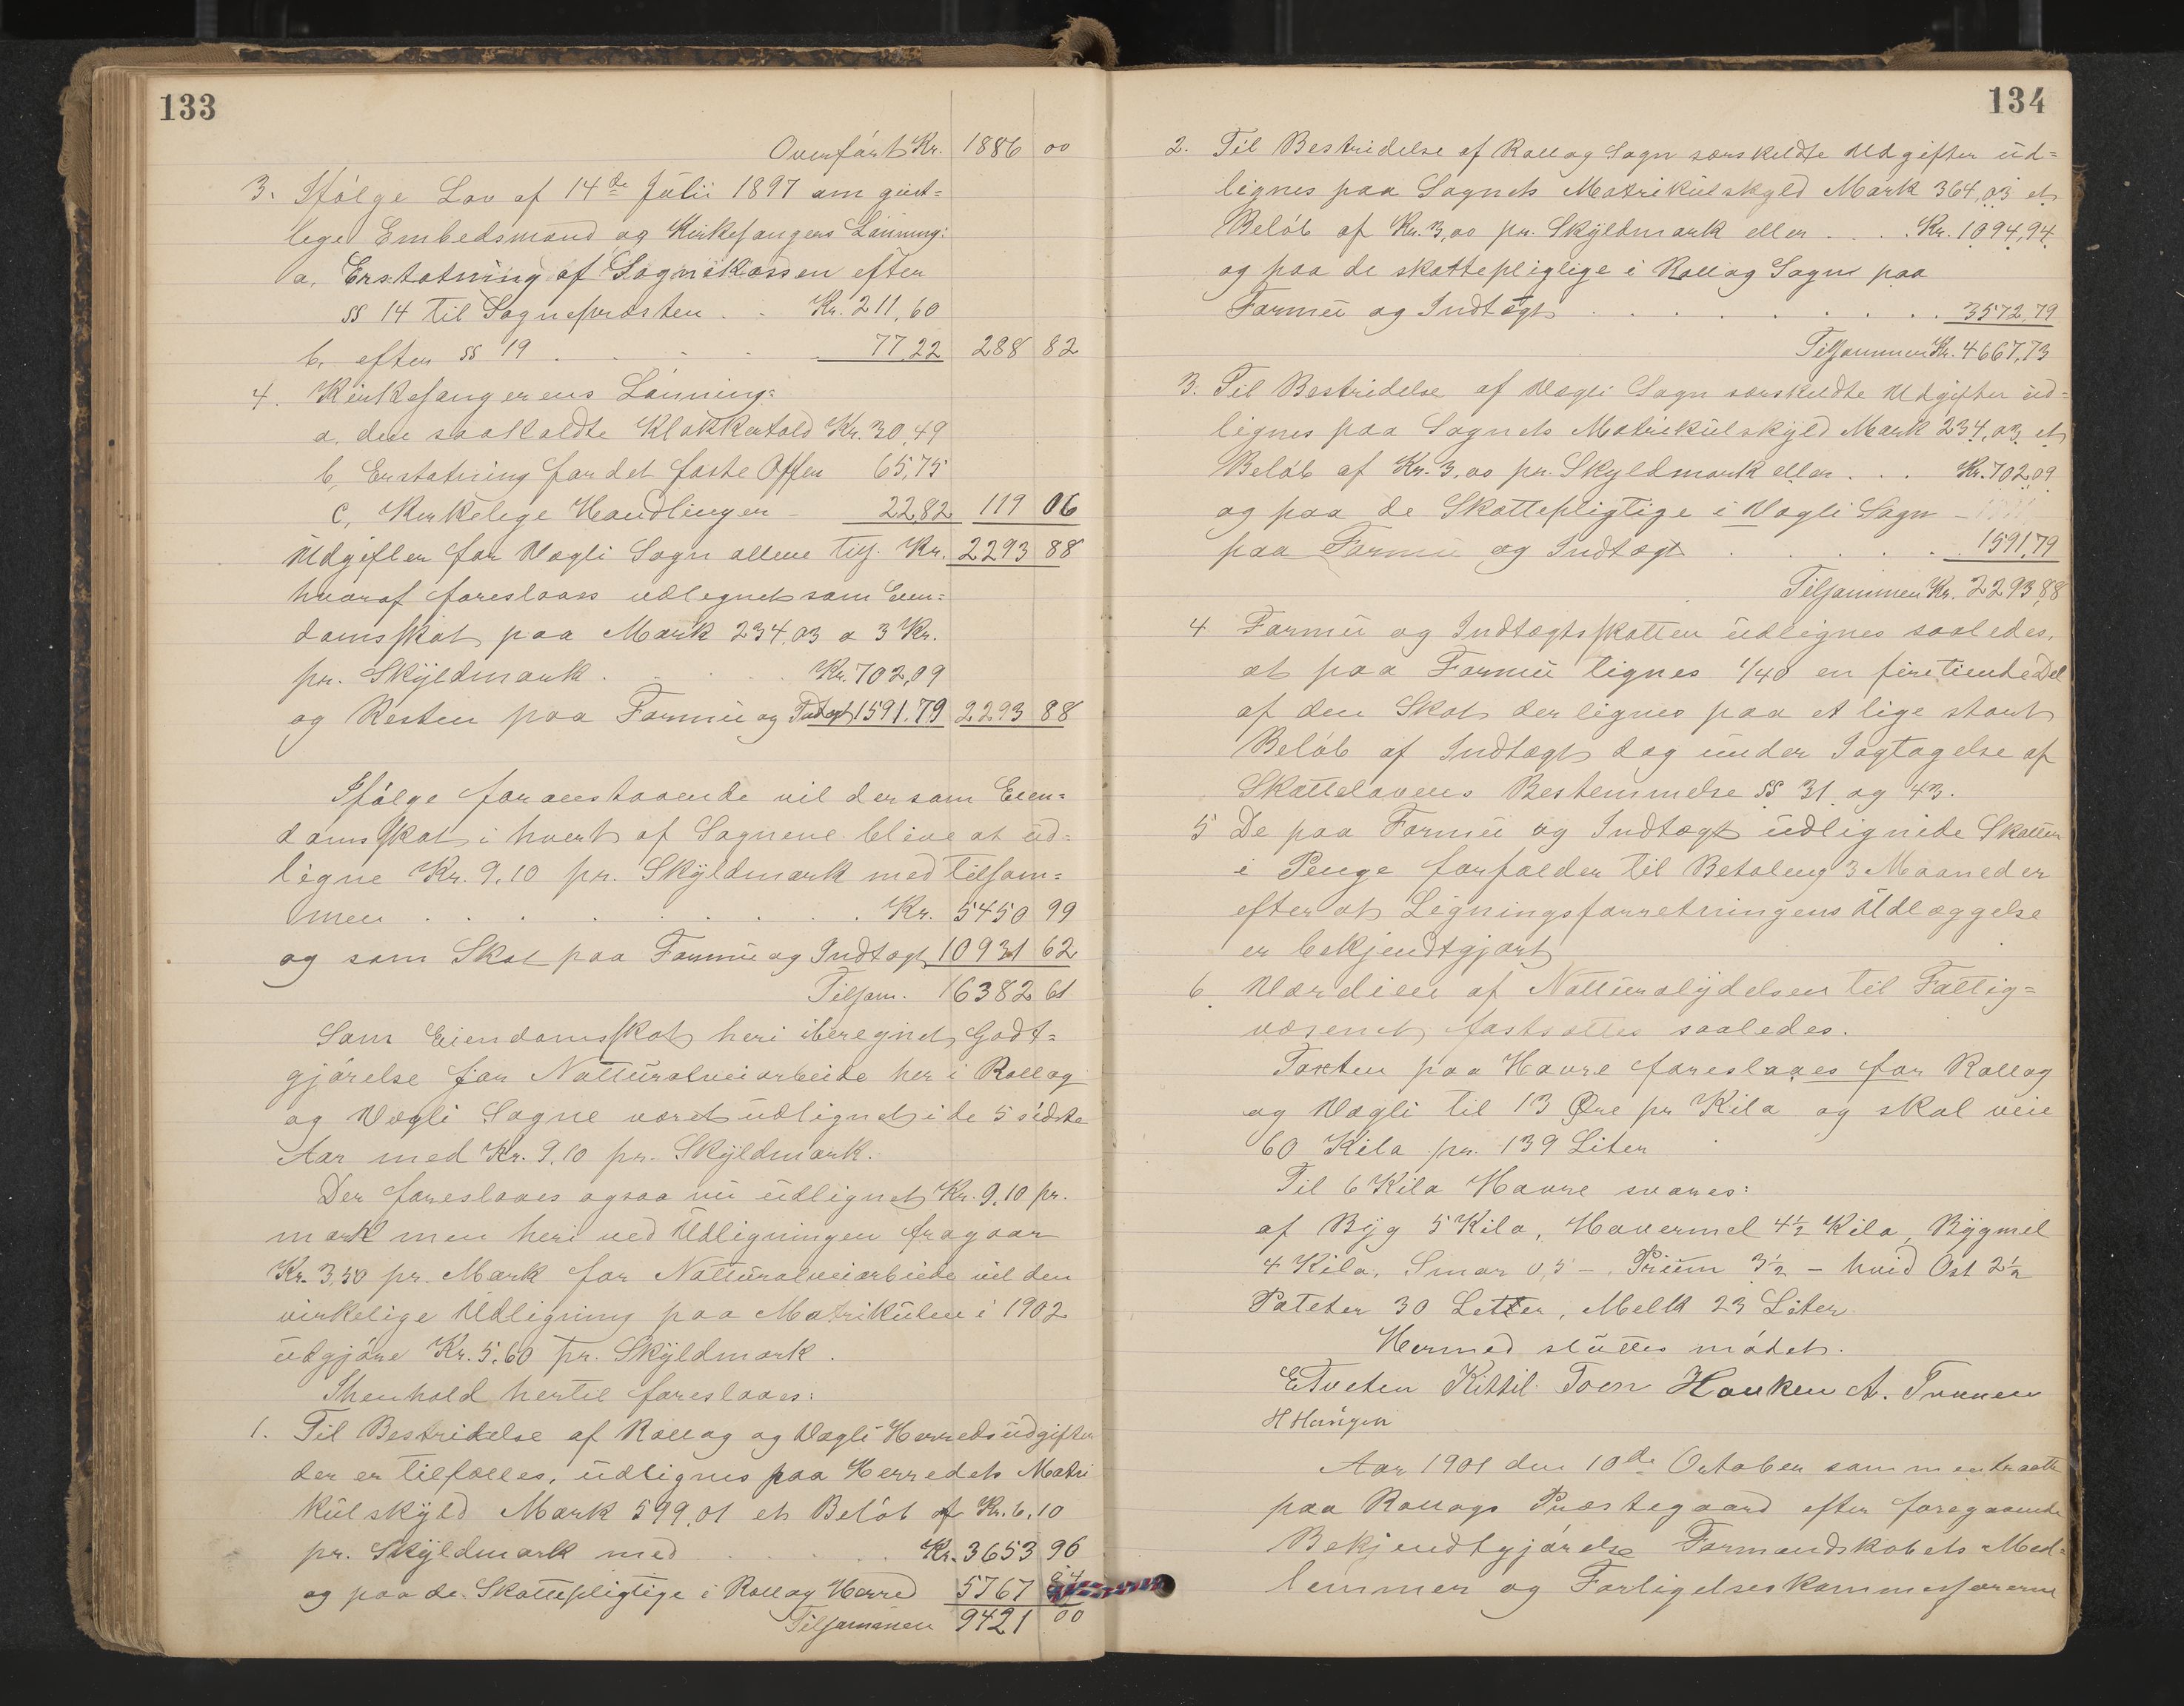 133
Overført Kr. 1886 00
3. Ifølge Lov af 14de Julii 1897 om geist=
lege Embedsmænd og Kirkesangers Lønning:
a, Erstatning af Sognekassen efter
§§ 14 til Sognepræsten . . Kr. 211,60
b, efter §§ 19 . . . . 77,22 288 82
4. Kirkesangerens Lønning:
a, den saakaldte Klokkertold Kr. 30,49
b, Erstatning for det faste Offer 65,75
c, Kirkelige Handlinger - 22,82 119 06
Udgifter for Vægli Sogn allene tils. Kr. 2293 88
hvoraf foreslaaes udlignet som Eien=
domsskat paa Mark 234,03 a 3 Kr.
pr. Skyldmark . . . . Kr. 702,09
og Resten paa Formue og Indtægt 1591,79 2293 88
Ifølge foranstaaende vil der som Eien=
domsskat i hvert af Sognene blive at ud=
ligne Kr. 9,10 pr. Skyldmark med tilsam=
men . . . . . . . . Kr. 5450 99
og som Skat paa Formue og Indtægt 10931 62
Tilsam. 16382 61
Som Eiendomsskat heri iberegnet, Godt=
gjørelse for Natturalveiarbeide her i Rollag
og Vægli Sogne været udlignet i de 5 sidste
Aar med Kr. 9,10 pr. Skyldmark.
Der foreslaaes ogsaa nu udlignet Kr. 9,10 pr.
mark men heri ved Udligningen fragaar
Kr. 3,50 pr. Mark for Natturalveiarbiede vil den
virkelige Udligning paa Matrikulen i 1902
udgjøre Kr. 5,60 pr. Skyldmark.
I henhold hertil foreslaaes:
1. Til Bestridelse af Rollag og Vægli Herreds udgifter
der er tilfælles, udlignes paa Herredets Matri
kulskyld Mark 599,01 et Beløb af Kr. 6,10
pr. Skyldmark med . . . . . Kr. 3653 96
og paa de Skattepligtige i Rollag Herred 5767
Tilsammen 9421 00
134
2. Til Bestridelse af Rollag Sogn særskildte Udgifter ud=
lignes paa Sognets Matrikulskyld Mark 364,03 et
Beløb af Kr. 3,00 pr. Skyldmark eller . . . Kr. 1094,94
og paa de skattepliglige i Rollag Sogn paa
Formue og Indtægt . . . . . . . . 3572,79
Tilsammen Kr. 4667,73
3. Til Bestridelse af Vægli Sogn særskildte Udgifter ud=
lignes paa Sognets Matrikulskyld Mark 234,03 et
Beløb af Kr. 3,00 pr. Skyldmark eller . . . Kr. 702,09
og paa de Skattepligtige i Vægli Sogn -
paa Formue og Indtægt . . . . . 1591,79
Tilsammen Kr. 2293,88
4 Formue og Indtægtsskatten udlignes saaledes,
at paa Formue lignes 1/40 en firetiende Del
af den Skat der lignes paa et lige stort
Beløb af Indtægt dog under Iagtagelse af
Skattelovens Bestemmelse §§ 31 og 43.
5 De paa Formue og Indtægt udlignide Skatter
i Penge forfalder til Betaling 3 Maaneder
efter at Ligningsforretningens Udlæggelse
er bekjendtgjort
6. Værdien af Natturalydelsen til Fattig=
væsenet fastsættes saaledes.
Taxten paa Havre foreslaaes for Rollag
og Vægli til 13 Øre pr Kilo og skal veie
60 Kilo pr. 139 Liter
Til 6 Kilo Havre svares:
af Byg 5 Kilo, Havermel 4½ Kilo, Bygmel
4 Kilo, Smør 0,5 -, Prim 3½ - hvid Ost 2½
Poteter 30 Letter, Melk 23 Liter
Hermed sluttes mødet.
E Tveten Kittil Toen Hauken A. Traaen
H Haugen
Aar 1901 den 10de October sammentraatte
paa Rollags Præstegaard efter foregaaende
Bekjendtgjørelse Formandskabets Med=
lemmer og Forligelseskommisærerne